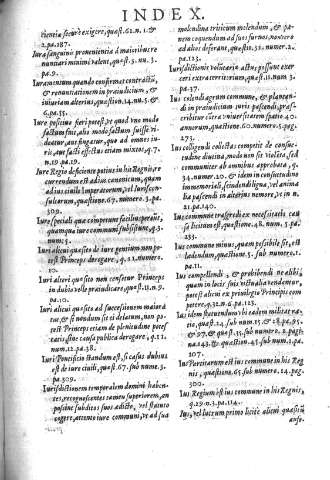 INDEX.
tientia secure exigere, quæst. 62. n. 1. &
2. pa. 187.
Iura sanguinis provenientia à maioribus re
nuntiari minimè valent, quæst. 3. nu. 3.
pa. 9.
Iuramentum quando confirmet contractũ,
& renuntiationem in præiudicium, &
iniuriam alterius, quæst. 14. nu. 5. &
6. pa. 55.
Iure positivo fieri potest, ut quod vno modo
factum fuit, alio modo factum fuisse vi-
deatur, aut fingatur, quo ad omnes iu-
ris, aut facti effectus etiam mixtos, q. 7.
n. 19. pa. 29.
Iure Regio deficiente patentis his Regnis, re
currendum est ad ius canonicum, quàm
ad ius ciuile Imperatorum, vel Iuriscon-
sultorum, quæstione. 67. numero. 3. pa.
309.
Iure speciali quæ competunt facilius perimũ,
quàm quæ iure communi subsistunt, q. 43
num. 5.
Iuri alicui quæsito de iure gentium non po-
test Princeps derogare, q. 12. numero.
10.
Iuri alteri quæsito non censetur Princeps
in dubio velle præiudicare, quæst. 11. n. 9.
pa. 10.
Iuri alicui quæsito ad successionem maiora
tus, & si nondum sit ei delatum, non po-
test Princeps etiam de plenitudine potest
tatis sine causa publica derogare, q. 11.
num. 12. pa. 38.
Iuri Pontificio standum est, si casus dubius
est de iure ciuili, quæst. 67. sub nume. 3.
pa. 309.
Iurisdictionem temporalem domini haben-
tes, recognoscentes tamen superiorem, an
possint subditis suis auditis, vel statuta
ergere, attento iure communi, ve ad sua
molendina triticum molendum, & pa-
nem coquendum ad suos furnos, nonvero
ad alios deferant, quæst. 32. numero. 2.
pa. 125.
Iurisdictionis voluntariæ actus, possunt exer-
ceri extra territorium, quæst. 11. num. 3.
pa. 37.
Ius colendi agrum commune, & plantan-
di in præiudicium iuris pascendi, præs-
cribitur cõtra vniuersitatem spatio 40.
annorum, quæstione. 60. numero. 5. pag.
273.
Ius colligendi collecta competit de consue-
tudine diutina, modo non sit violẽta, sed
communiter ab omnibus approbata, q.
34. numero. 20. & idem in consuetudine
immemoriali, scindendi ligna, vel anima
lia pascendi in alterius nemore, vel in a-
gro, n. 21.
Ius commune trãsgredi ex necessitatis cau
sa licitum est, quæstione. 48. num. 5. pa.
235.
Ius commune minus, quam possibile sit, est
lædendum, quæstione. 2. sub numero. 1.
pa. 11.
Ius compellendi, & prohibendi ne alibi,
quam in locis suis victualia vendentur,
potest alicui ex privilegio Principis com
petere, q. 32. n. 6. pa. 123.
Ius idem statuendum vbi eadem militat ra-
tio, quæst. 14. sub num. 5. & 28. pa. 95.
& 97. & quæst. 35. sub numero. 2. pag.
na. 143. & quæstion. 45. sub num. 1. pa.
207.
Ius Partitarum est ius commune in his Reg
nis, quæstione. 65. sub numero. 14. pag.
300.
Ius Regium est ius commune in his Regnis,
q. 29. n. 3. pa. 114.
Ius, vel lucrum primo licitè alicui quæsitũ
aufe-